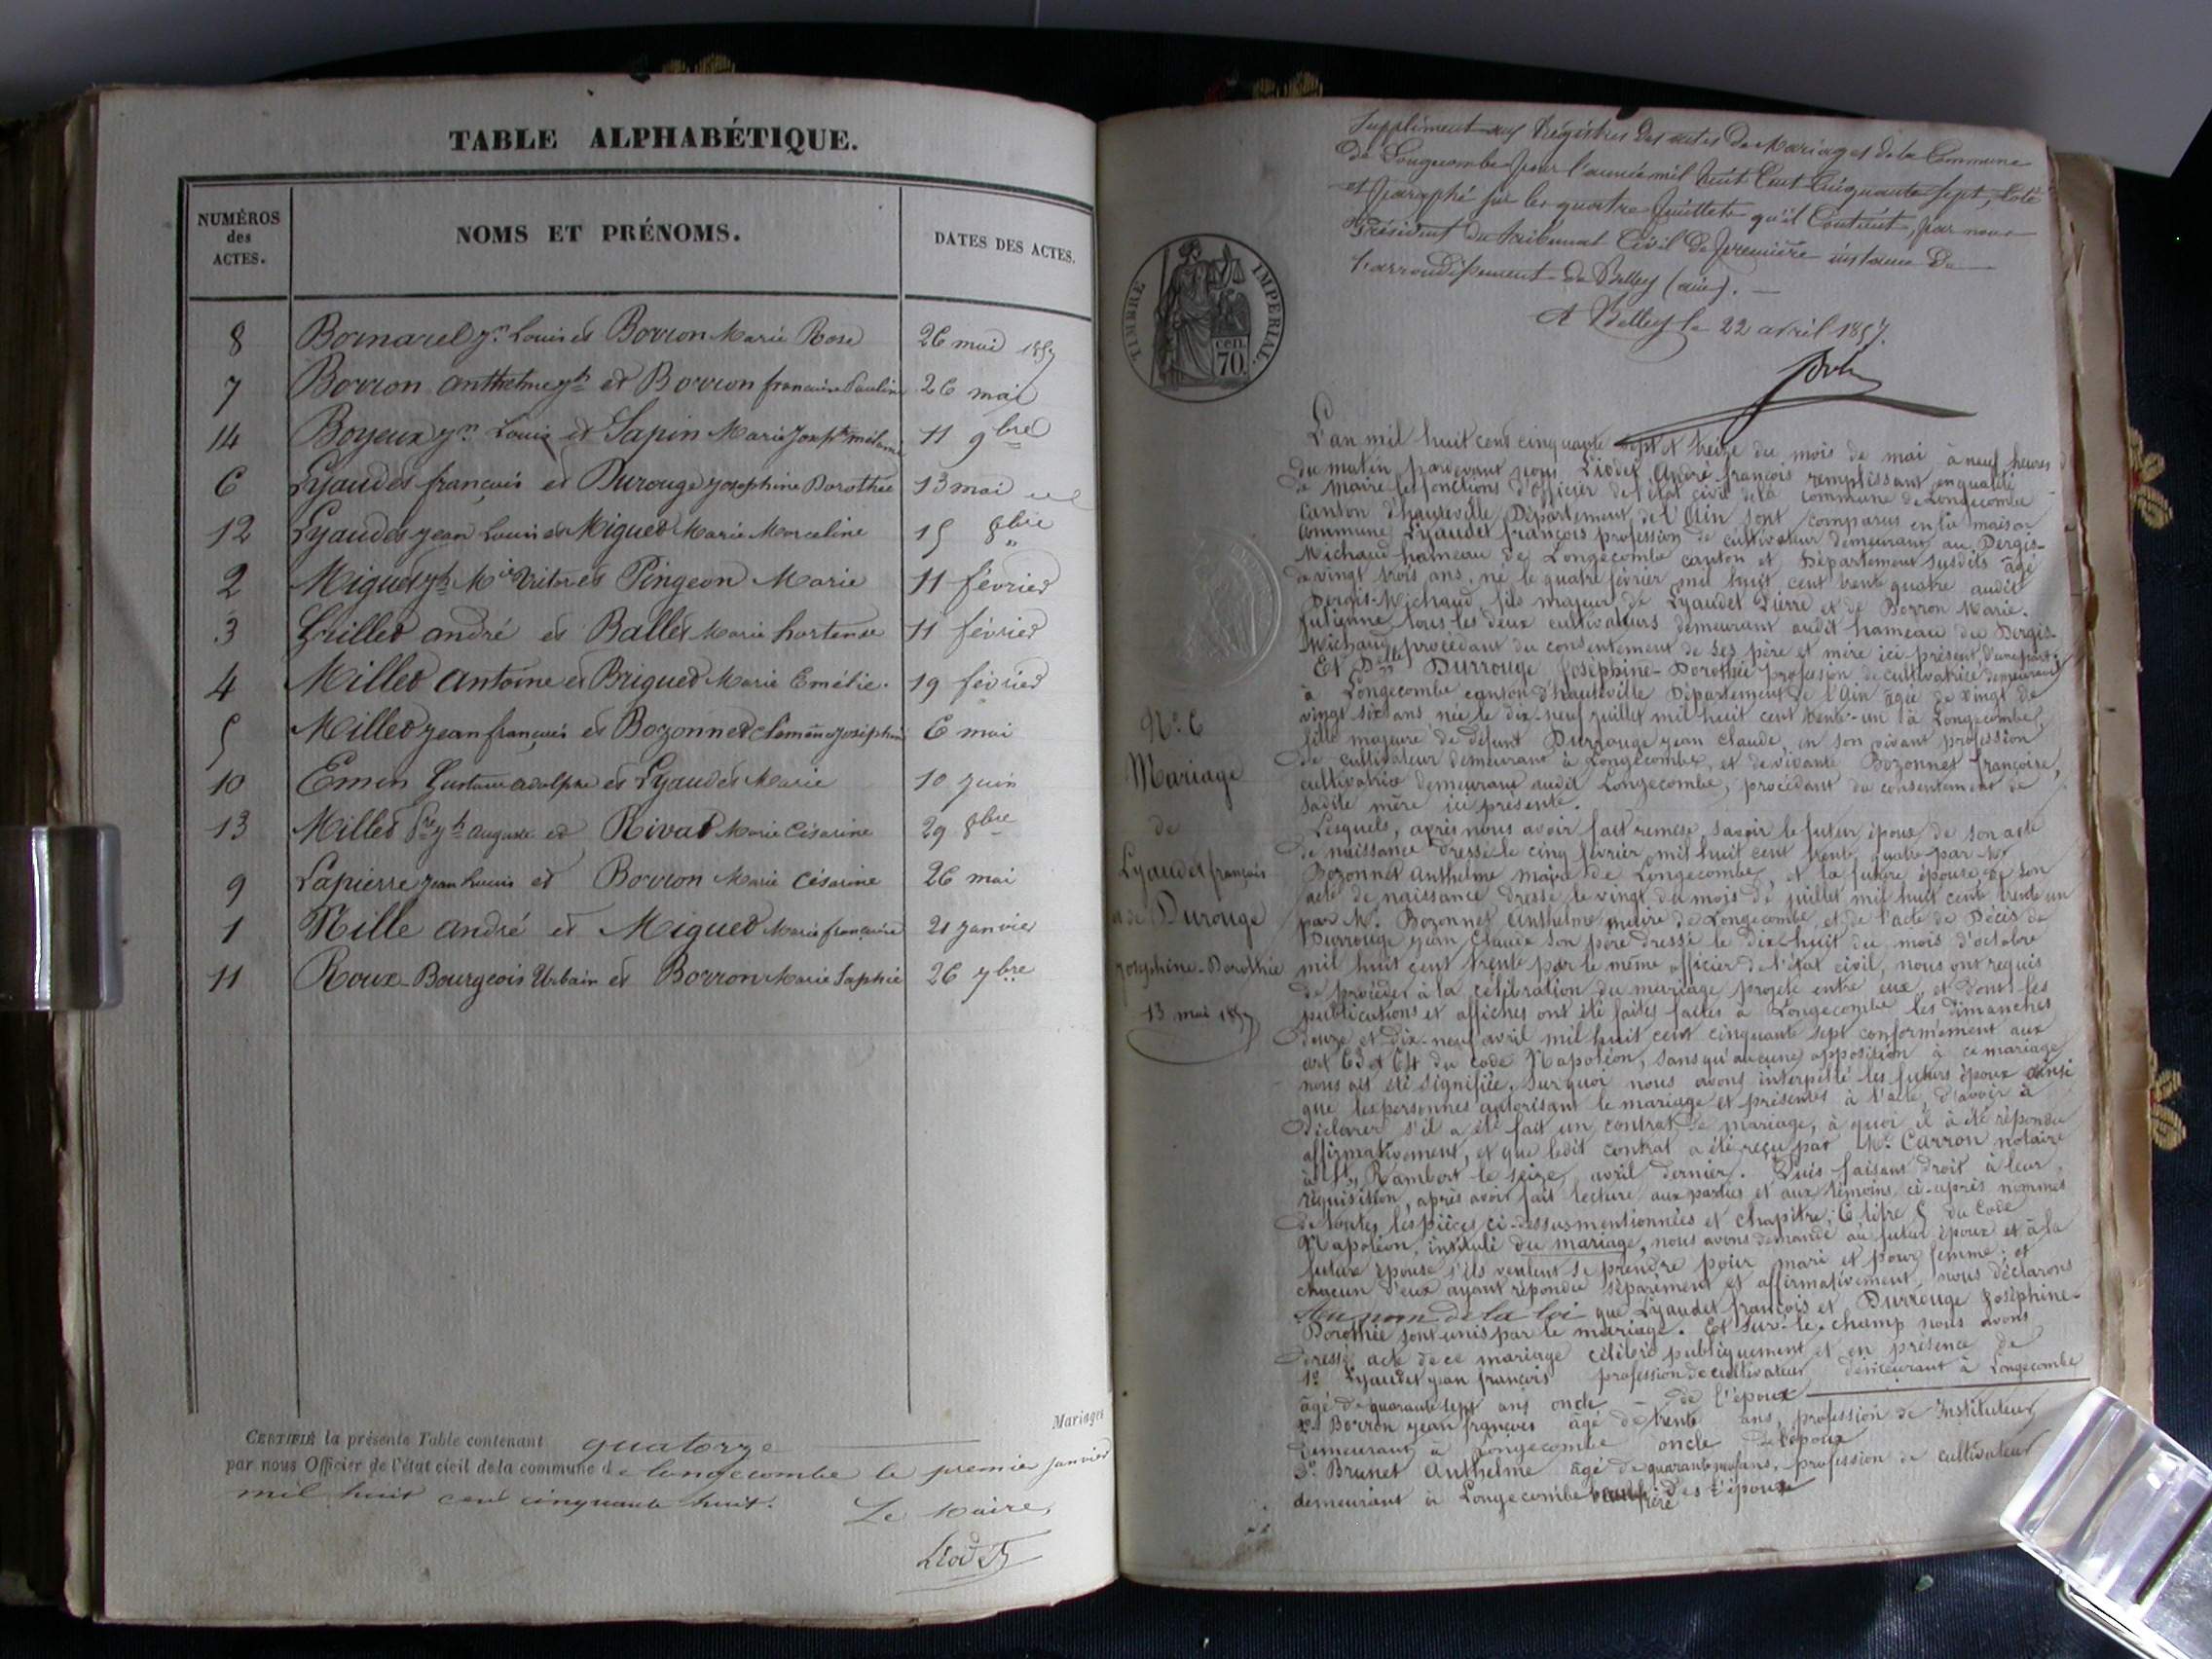 TABLE ALPHABÉTIQUE.
NUMÉROS des ACTES.
NOMS ET PRÉNOMS.
DATES DES ACTES.
8 Bornarel Louis et Borron Marie Rose 26 mai 1857
7 Borron anthelme et Borron françoise Pauline 26 mai
14 Boyeux Louis et Sapin Marie 11 9bre
6 Lyaudet françois et Durouge Josephine Dorothée 13 mai
12 Lyaudet jean Louis et Miguet Marie Marceline 15 8bre
2 Miguet et Pingeon Marie 11 février
3 Grillet andré et Ballet Marie hortense 11 février
4 Millet antoine et Briguet Marie Emélie. 19 février
5 Millet jean françois et Bozonnet 6 mai
10 Emin Gustave adolphe et Lyaudet Marie 10 juin
13 Millet auguste et Rivat Marie Césarine 29 8bre
9 Lapierre jean Louis et Borron Marie Césarine 26 mai
1 Nille andré et Miguet Marie françoise 21 janvier
11 Roux-Bourgeois Urbain et Borron Marie Sophie 26 7bre
Mariages
CERTIFIÉ la présente Table contenant quatorze
par nous Officier de l'état civil de la commune de longecombe le premier janvier
mil huit cent cinquante huit.
Le Maire,
Liodet
Supplément aux Régistres des actes de Mariages de la Commune
de Longecombe pour l'année mil huit Cent Cinquante sept, Coté
et paraphé sur les quatre feuillets qu'il Contient, par nous
Président du tribunal Civil de première instance de
l'arrondissement de Belley (ain).
A Belley le 22 avril 1857.
TIMBRE IMPERIAL.
70 cen.
L'an mil huit cent cinquante sept et treize du mois de mai à neuf heures
du matin, pardevant nous Liodet, André françois remplissant en qualité
de Maire les fonctions d'officier de l'état civil de la commune de Longecombe
canton d'hauteville Département de l'Ain sont comparus en la maison
commune Lyaudet françois profession de cultivateur demeurant au Dergis-
Michaud hameau de Longecombe canton et Département susdits âgé
de vingt trois ans, né le quatre février mil huit cent trente quatre audit
Dergis-Michaud, fils majeur de Lyaudet Pierre et de Borron Marie.
Julienne tous les deux cultivateurs demeurant audit hameau du Dergis-
Michaud, procédant du consentement de ses père et mère ici présent, d'une part;
Et Dlle Durrouge Joséphine-Dorothée profession de cultivatrice demeurant
à Longecombe canton d'hauteville Département de l'Ain âgée de vingt de
vingt six ans née le dix-neuf juillet mil huit cent trente-un à Longecombe,
fille majeure de défunt Durrouge jean claude, en son vivant profession
de cultivateur demeurant à Longecombe, et de vivante Bozonnet françoise,
cultivatrice demeurant audit Longecombe, procédant du consentement de
sadite mère ici présente.
Lesquels, après nous avoir fait remise, savoir le futur époux de son acte
de naissance dressé le cinq février mil huit cent trente quatre par Mr
Bozonnet Anthelme maire de Longecombe, et la future épouse de son
acte de naissance dressé le vingt du mois de juillet mil huit cent trente un
par Mr. Bozonnet Anthelme maire de Longecombe et de l'acte de Décès de
Durrouge jean Claude son père dressé le dix-huit du mois d'octobre
mil huit cent trente par le même officier de l'état civil, nous ont requis
de procéder à la célébration du mariage projeté entre eux, et dont les
publications et affiches ont été faites à Longecombe les dimanches
douze et dix-neuf avril mil huit cent cinquante sept conformément aux
art 63 et 64 du code Napoléon, sans qu'aucune opposition à ce mariage
nous ait été signifiée. Sur quoi nous avons interpellé les futurs époux ainsi
que les personnes autorisant le mariage et présentes à l'acte d'avoir à
déclarer s'il a été fait un contrat de mariage, à quoi il a été répondu
affirmativement, et que ledit contrat a été reçu par Me. Carron notaire
à St Rambert le seize avril dernier. Puis faisant droit à leur
réquisition, après avoir fait lecture aux parties et aux témoins ci-après nommés
de toutes les pièces ci-dessus mentionnées et chapitre 6 titre 5 du Code
Napoléon, intitulé du mariage, nous avons demandé au futur époux et à la
future épouse s'ils veulent se prendre pour mari et pour femme; et
chacun d'eux ayant répondu séparément et affirmativement, nous déclarons
Au nom de la loi que Lyaudet françois et Durrouge Joséphine-
Dorothée sont unis par le mariage. Et sur-le-champ nous avons
dressé acte de ce mariage célébré publiquement et en présence de
1° Lyaudet jean françois profession de cultivateur demeurant à Longecombe
âgé de quarante sept ans oncle de l'époux
2° Borron jean françois âgé de trente ans, profession de Instituteur
demeurant à Longecombe oncle de l'époux
3° Brunet Anthelme âgé de quarante ans, profession de cultivateur
demeurant à Longecombe
N° 6
Mariage
de
Lyaudet françois
et de Durouge
Josephine-Dorothée
13 mai 1857